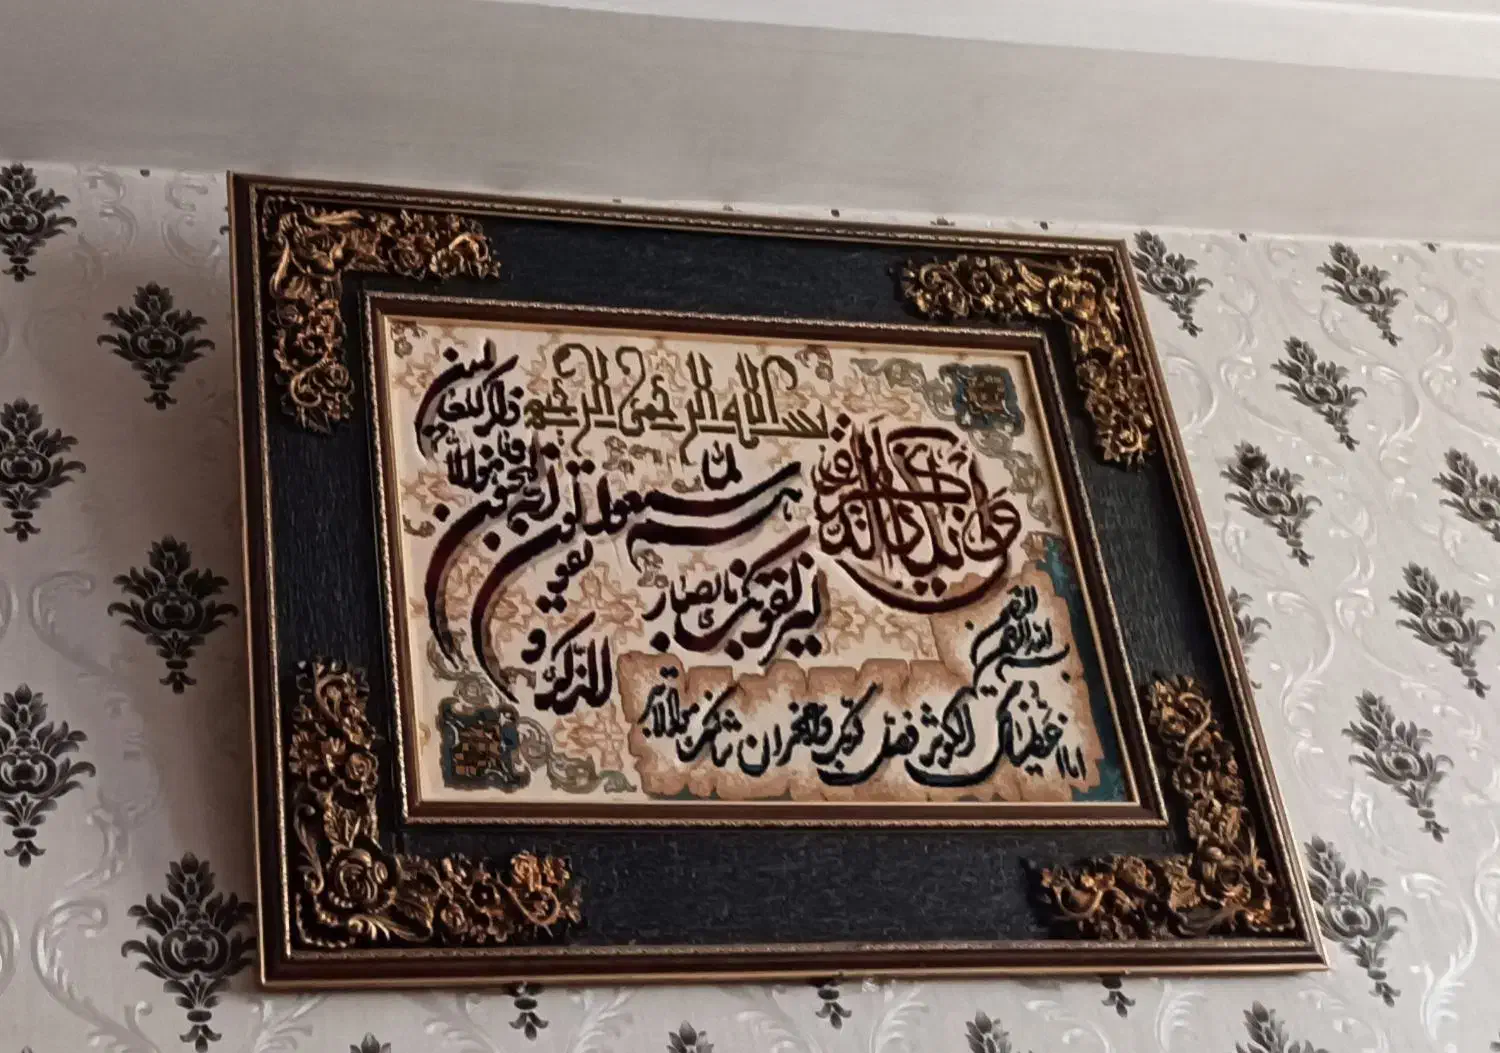 بسم الله الرحمن الرحیم
وان یکاد الذین کفروا
لیزلقونک بابصارهم لما سمعوا
الذکر و یقولون انه لمجنون
و ما هو الا ذکر للعالمین
بسم الله الرحمن الرحیم
انا اعطیناک الکوثر فصل لربک وانحر ان شانئک هو الابتر